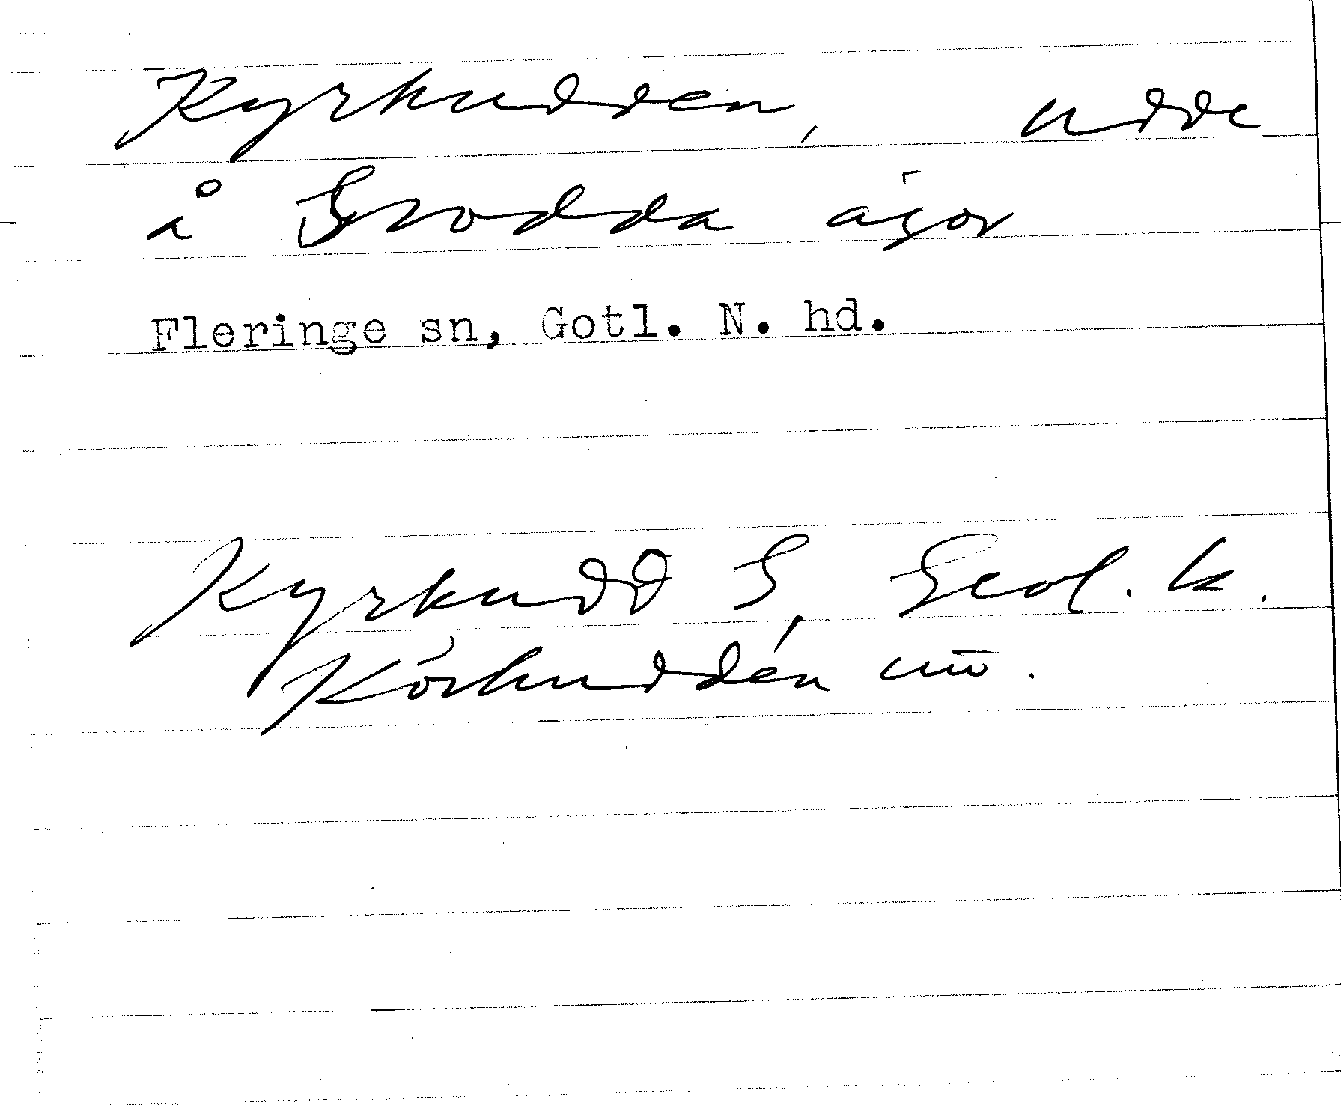 Kyrkudden, udde
å Grodda ägor
Fleringe sn, Gotl. N. hd.
Kyrkudd S, Geol. k.
Körkuddén